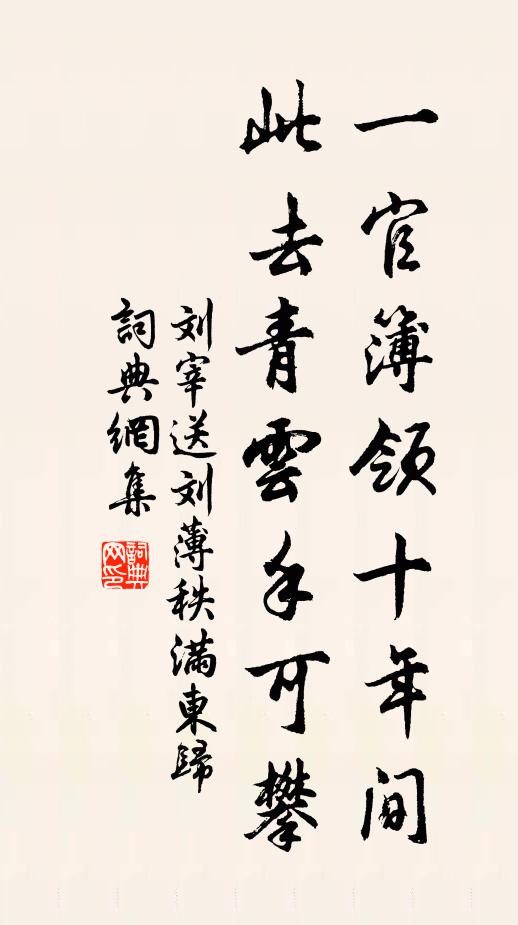 一官簿領十年间
此去青雲手可攀
刘宰送刘薄秩滿東歸
詞典網集
詞典网印